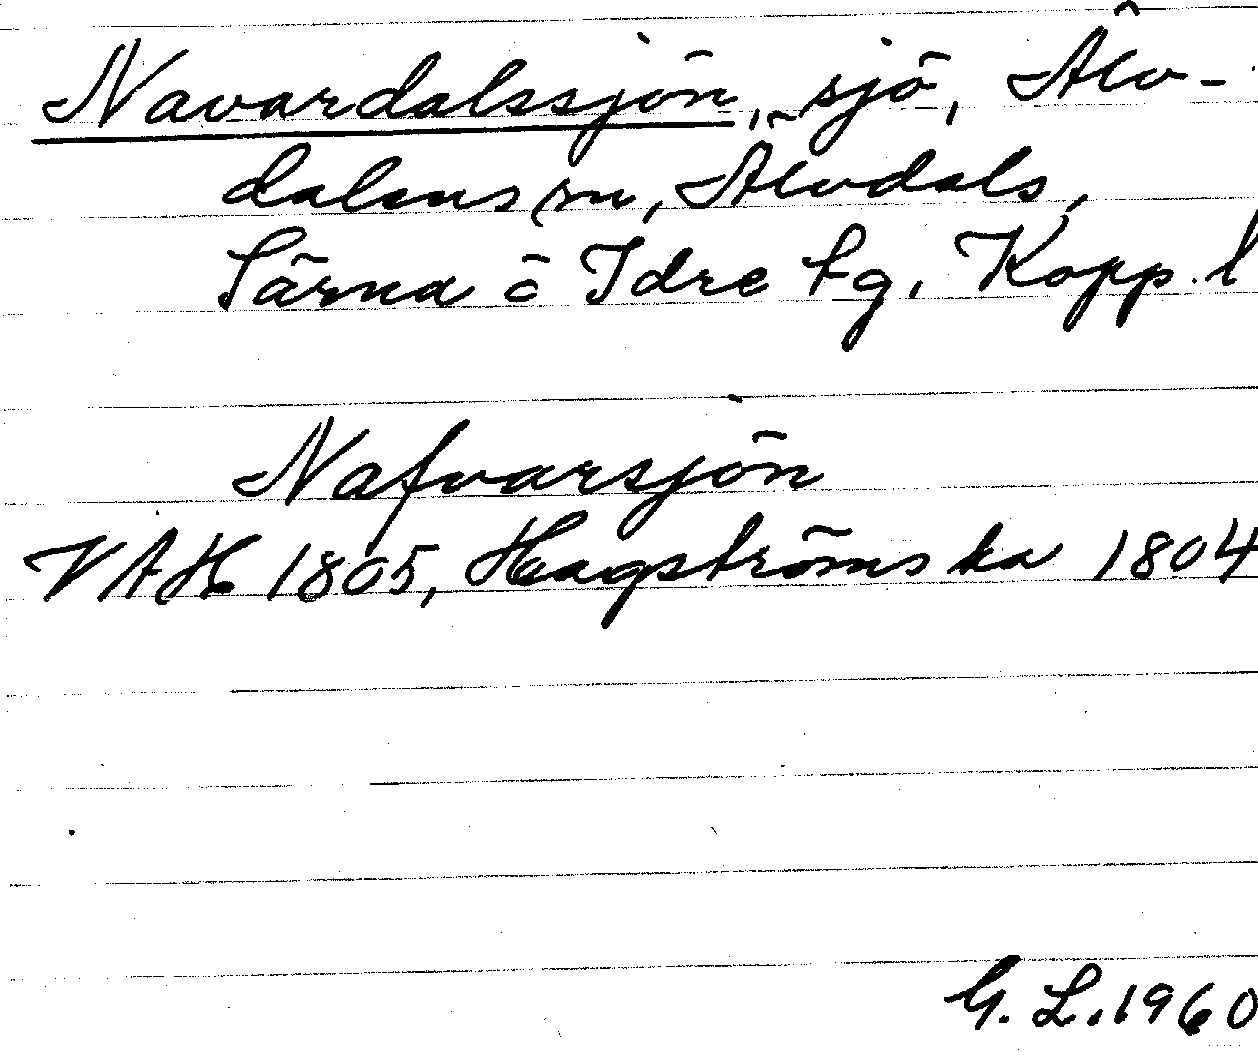 Navardalssjön, sjö, Älv-
dalens sn, Älvdals,
Särna o Idre tg, Kopp. l
Nafvarsjön
VAH 1805, Hagströms ka 1804
G. L. 1960